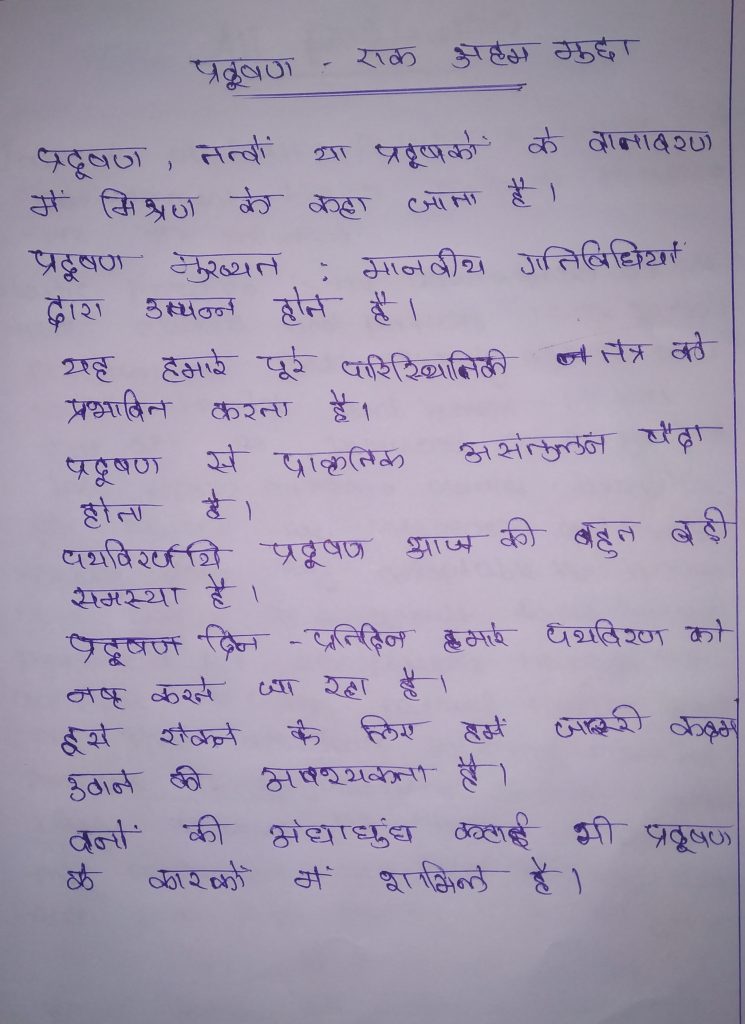 प्रदूषण - एक अहम मुद्दा
प्रदूषण , तत्वों या प्रदूषकों के वातावरण
में मिश्रण को कहा जाता है ।
प्रदूषण मुख्यत : मानवीय गतिविधियों
द्वारा उत्पन्न होते है ।
यह हमारे पूरे पारिस्थितिकी तंत्र को
प्रभावित करता है ।
प्रदूषण से प्राकृतिक असंतुलन पैदा
होता है ।
पर्यावरणीय प्रदूषण आज की बहुत बड़ी
समस्या है ।
प्रदूषण दिन - प्रतिदिन हमारे पर्यावरण को
नष्ट करते जा रहा है ।
इसे रोकने के लिए हमें जरूरी कदम
उठाने की आवश्यकता है ।
वनों की अंधाधुंध कटाई भी प्रदूषण
के कारकों में शामिल है ।